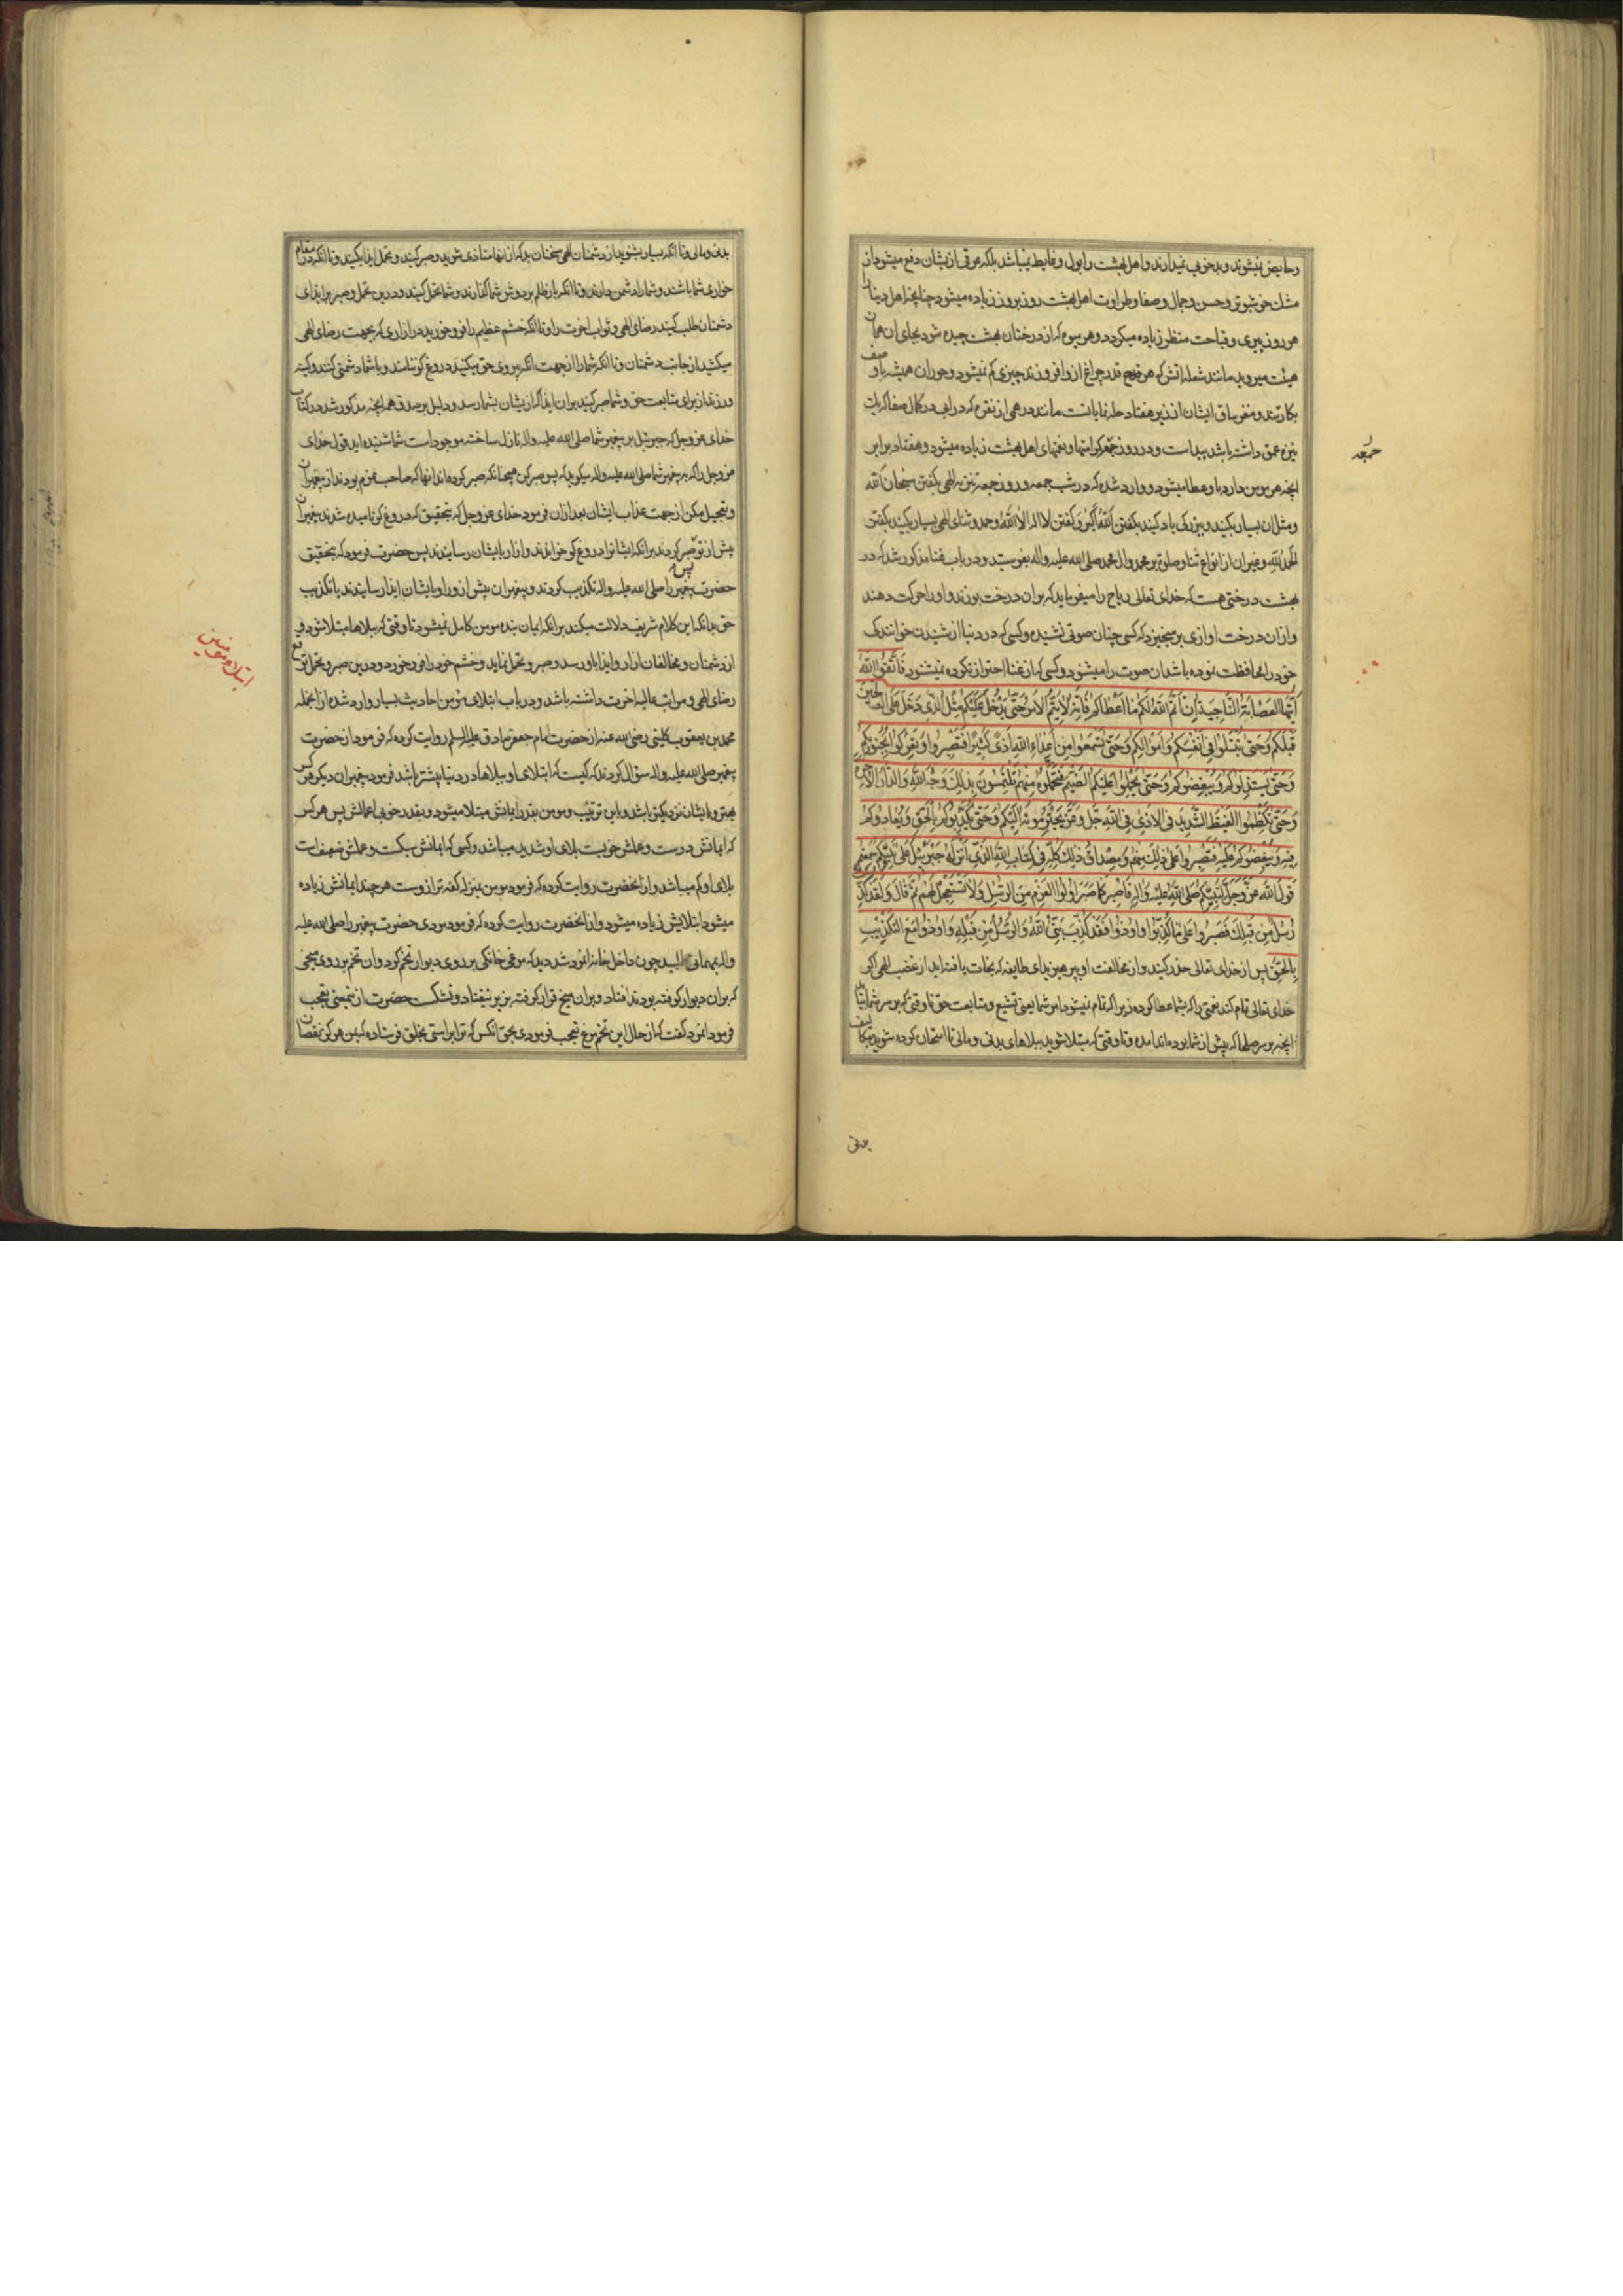 وحایض نمیشوند و بدخویی نمیدارند و اهل بهشت را بول و غایط نمیباشد بلکه عرقی ازیشان دفع میشود از
مشک خوشبوتر و حسن و جمال و صفا و طراوت اهل بهشت روز بروز زیاده میشود چنانچه اهل دنیا را
هر روز پیری و قباحت منظر زیاده میکردد و هر میوه که از درختان بهشت چیده شود بجای ان همان
هیئت میروید مانند شعله اتش که هر چراغ ازو افروزند چیزی کم نمیشود و حوران همیشه باو صف
بکارتند و مغز ساق ایشان از زیر هفتاد حله نمایانست مانند درهمی از نقره که در ابی در کمال صفا که یک
نیزه عمق داشته باشد پیداست و در روز جمعه کرامتها و نعمتهای اهل بهشت زیاده میشود و هفتاد برابر
انچه هر مومن دارد باو عطا میشود و وارد شده که در شب جمعه و روز جمعه تنزیه الهی بکفتن سبحان الله
و مثل ان بسیار بکنید و ببزرکی یاد کنید بکفتن الله اکبر و کفتن لا اله الا الله و حمد و ثنای الهی بسیار بکنید بکفتن
الحمد لله و غیر ان از انواع ثنا و صلوة بر محمد و ال محمد صلی الله علیه و اله بفرستید و در باب غنا مذکور شد که در
بهشت درختی هست که خدای تعالی ریاح را میفرماید که بران درخت بوزند و او را حرکت دهند
و ازان درخت اوازی بر میخیزد که کسی چنان صوتی نشنیده و کسی که در دنیا از شنیدن خوانندکی
خود را محافظت نموده باشد ان صوت را میشنود و کسی که از غنا احتراز نکرده نمیشنود فَاتَّقُوا اللّٰهَ
اَیَّتُهَا العِصَابَةُ النَّاجِیَةُ اِنْ اَتَمَّ اللّٰهُ لَکُمْ مَا اَعْطَاکُمْ فَاِنَّهُ لاَ یَتِمُّ الاَمْرُ حَتّٰی یَدْخُلَ عَلَیْکُمْ مِثْلُ الَّذِی دَخَلَ عَلَی الصَّالِحِینَ
قَبْلَکُمْ وَ حَتّٰی تُبْتَلَوْا فِی اَنْفُسِکُمْ وَ اَمْوَالِکُمْ وَ حَتّٰی تَسْمَعُوا مِنْ اَعْدَاءِ اللّٰهِ اَذًی کَثِیرًا فَتَصْبِرُوا وَ تَعْرُکُوا بِجُنُوبِکُمْ
وَ حَتّٰی یَسْتَذِلُّوکُمْ وَ یُبْغِضُوکُمْ وَ حَتّٰی یُحَمِّلُوا عَلَیْکُمُ الضَّیْمَ فَتَحَمَّلُوهُ مِنْهُمْ تَلْتَمِسُونَ بِذٰلِکَ وَجْهَ اللّٰهِ وَ الدَّارَ الاٰخِرَةَ
وَ حَتّٰی تَکْظِمُوا الغَیْظَ الشَّدِیدَ فِی الاَذٰی فِی اللّٰهِ جَلَّ وَ عَزَّ یَجْتَرِمُونَهُ اِلَیْکُمْ وَ حَتّٰی یُکَذِّبُوکُمْ بِالْحَقِّ وَ یُعَادُوکُمْ
فِیهِ وَ یُبْغِضُوکُمْ عَلَیْهِ فَتَصْبِرُوا عَلٰی ذٰلِکَ مِنْهُمْ وَ مِصْدَاقُ ذٰلِکَ کُلِّهِ فِی کِتَابِ اللّٰهِ الَّذِی اَنْزَلَهُ جَبْرَئِیلُ عَلٰی نَبِیِّکُمْ سَمِعْتُمْ
قَوْلَ اللّٰهِ عَزَّ وَ جَلَّ لِنَبِیِّکُمْ صَلَّی اللّٰهُ عَلَیْهِ وَ اٰلِهِ فَاصْبِرْ کَمَا صَبَرَ اُولُوا العَزْمِ مِنَ الرُّسُلِ وَ لاَ تَسْتَعْجِلْ لَهُمْ ثُمَّ قَالَ وَ لَقَدْ کُذِّبَ
رُسُلٌ مِنْ قَبْلِکَ فَصَبَرُوا عَلٰی مَا کُذِّبُوا وَ اُوذُوا فَقَدْ کُذِّبَ نَبِیُّ اللّٰهِ وَ الرُّسُلُ مِنْ قَبْلِهِ وَ اُوذُوا مَعَ التَّکْذِیبِ
بِالحَقِّ پس از خدای تعالی حذر کنید و از مخالفت او بپرهیزید ای طایفه که نجات یافته اید از غضب الهی اکر
خدای تعالی تمام کند نعمتی را که بشما عطا کرده زیرا که تمام نمیشود امر شما یعنی تشیع و متابعت حق تا وقتی که بر سر شما بیاید
انچه بر سر صلحا که پیش از شما بوده اند امده و تا وقتی که مبتلا شوید ببلاهای بدنی و مالی تا امتحان کرده شوید بتکالیف
جمعه
بدنی
بدنی و مالی و تا انکه بسیار بشنوید از دشمنان الهی سخنان بد که ازانها متاذی شوید و صبر کنید و تحمل ایذا بکنید و تا انکه در مقام
خواری شما باشند و شما را دشمن دارند و تا انکه بار ظلم بر دوش شما کذارند و شما تحمل کنید و درین تحمل و صبر بر ایذای
دشمنان طلب کنید رضای الهی و ثواب اخرت را و تا انکه خشم عظیم را فرو خورید در ازاری که بجهت رضای الهی
میکشید از جانب دشمنان و تا انکه شما را از جهت انکه پیروی حق میکنید دروغ کو نامند و با شما دشمنی کنند و کینه
ورزند از برای متابعت حق و شما صبر کنید بران ایذا که ازیشان بشما رسد و دلیل بر صدق همه انچه مذکور شد در کتاب
خدای عز و جل که جبرئیل بر پیغمبر شما صلی الله علیه و اله نازل ساخته موجود است شما شنیده اید قول خدای
عز و جل را که به پیغمبر شما صلی الله علیه و اله میکوید که پس صبر کن همچنانکه صبر کرده اند انها که صاحب عزم بودند از پیغمبران
و تعجیل مکن از جهت عذاب ایشان بعد ازان فرمود خدای عز و جل که بتحقیق که دروغ کو نامیده شدند پیغمبران
پیش از تو پس صبر کردند برانکه ایشانرا دروغ کو خواندند و ازار بایشان رسانیدند پس حضرت فرمود که بتحقیق
حضرت پیغمبر را صلی الله علیه و اله تکذیب کردند و پیغمبران پیش ازو را و بایشان ایذا رسانیدند با تکذیب
حق بدانکه این کلام شریف دلالت میکند برانکه ایمان بنده مومن کامل نمیشود تا وقتی که ببلاها مبتلا شود و
از دشمنان و مخالفان ازار و ایذا باو رسد و صبر و تحمل نماید و خشم خود را فرو خورد و درین صبر و تحمل توقع
رضای الهی و مراتب عالیه اخرت داشته باشد و در باب ابتلای مؤمن احادیث بسیار وارد شده از انجمله
محمد بن یعقوب کلینی رضی الله عنه از حضرت امام جعفر صادق علیه السلام روایت کرده که فرمود از حضرت
پیغمبر صلی الله علیه و اله سؤال کردند که کیست که ابتلای او ببلاها در دنیا بیشتر باشد فرمود پیغمبران دیکر هر کس
بهتر و بایشان نزدیکتر باشد و باین ترتیب و مومن بقدر ایمانش مبتلا میشود و بقدر خوبی اعمالش پس هر کس
که ایمانش درست و عملش خوبست بلای او شدید میباشد و کسی که ایمانش سبکست و عملش ضعیفست
بلای او کم میباشد و از انحضرت روایت کرده که فرمود مومن بمنزله کفه ترازوست هر چند ایمانش زیاده
میشود ابتلایش زیاده میشود و از انحضرت روایت کرده که فرمود مردی حضرت پیغمبر را صلی الله علیه
و اله بمهمانی طلبید چون داخل خانه انمرد شد دید که مرغی خانکی بر روی دیوار تخم کرد و ان تخم بر روی میخی
که بران دیوار کوفته بودند افتاد و بران میخ قرار کرفته بزیر نیفتاد و نشکست حضرت ازینمعنی تعجب
فرمود انمرد کفت که از حال این تخم مرغ تعجب فرمودی بحق انکس که ترا براستی بخلق فرستاده که من هرکز نقصان
ابتلاء مومنین